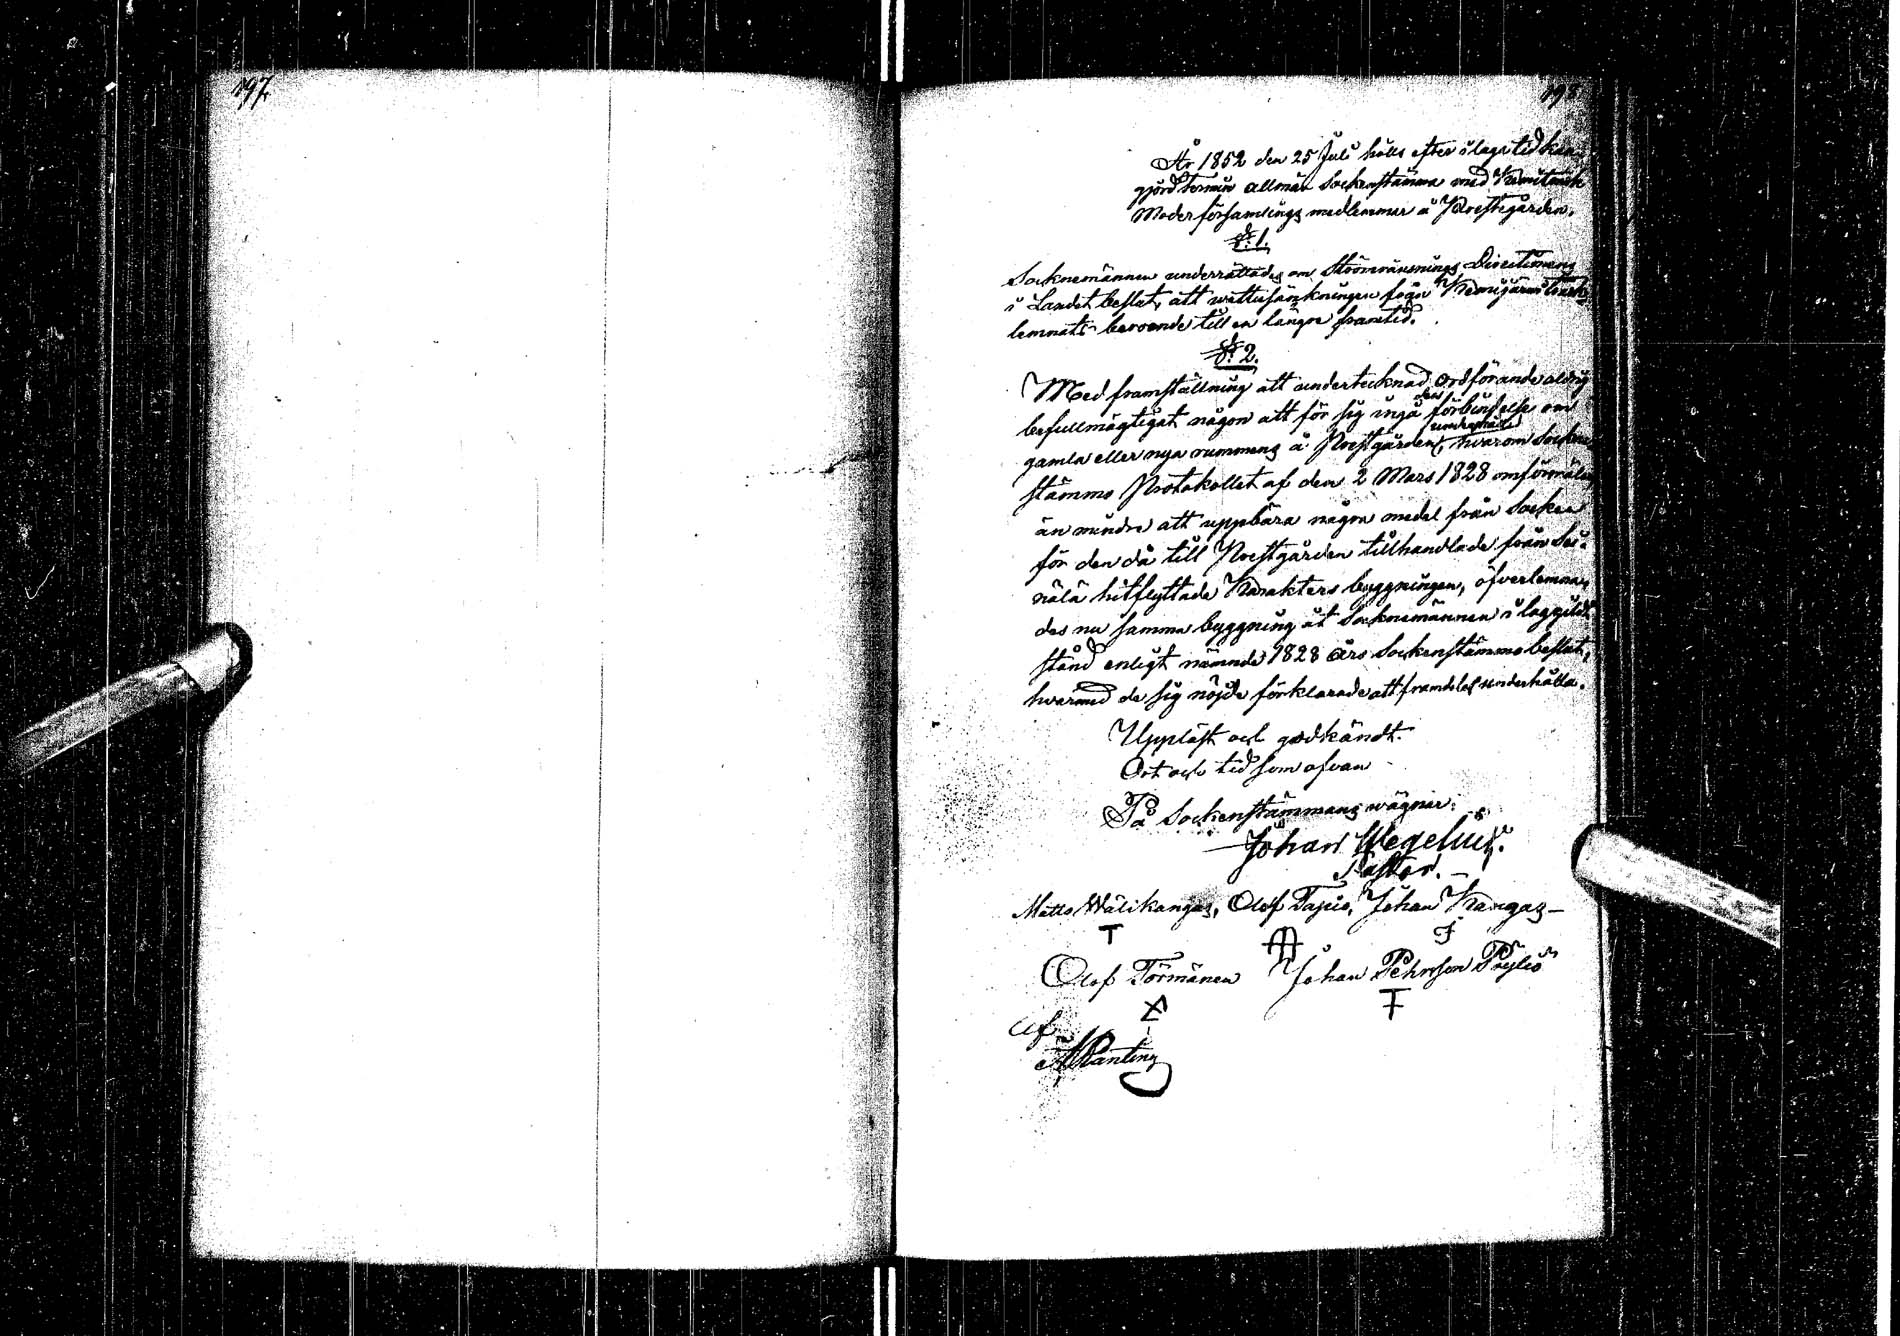 197.
198
År 1852 den 25 Juli hölls efter i laga tid kun-
gjord termin allmän Sockenstämma med Kemiträsk
Moderförsamlings medlemmar å Prestgården.
§. 1.
Socknemännen underrättades om Strömränsnings Directionens
i Landet beslut, att vattusänkningen från Kemijärvi träsk
lemnats beroende till en längre framtid.
§. 2.
Med framställning att undertecknad Ordförande aldrig
befullmägtigat någon att för sig ingå den förbindelse om
gamla eller nya rummens å Prestgården underhåll, hvarom Sockne
stämmo Protokollet af den 2 Mars 1828 omförmäler
än mindre att uppbära några medel från Socken
för den då till Prestgården tillhandlade från
hitflyttade Karakters byggningen, öfverlemna-
des nu samma byggning åt Socknemännen i laggildt
stånd enligt nämnde 1828 års Sockenstämmo beslut,
hvarmed de sig nöjde förklarade att framdeles underhålla.
Uppläst och godkändt.
Ort och tid som ofvan
På Sockenstämmans wägnar:
Johan Wegelius.
Pastor.
Matts Wälikangas, Olof Tapio, Johan Kangas
Olof Törmänen Johan Pehrsson Pöyliö